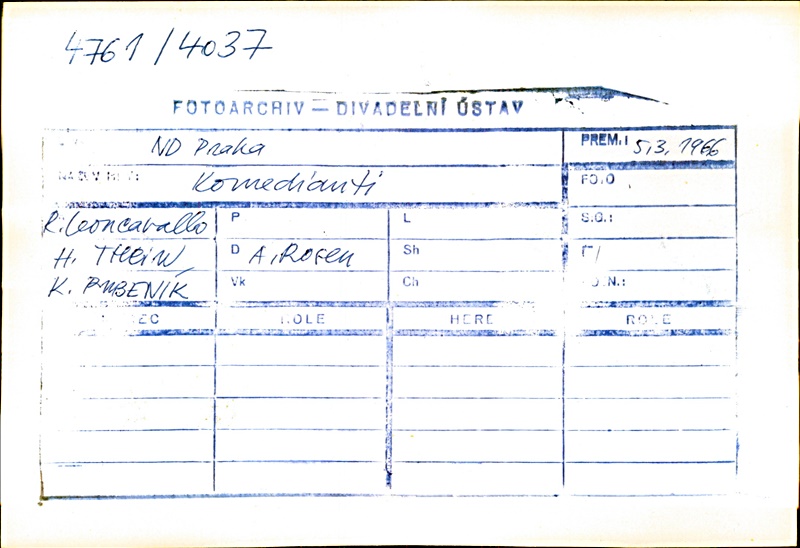 4761/4037
FOTOARCHIV — DIVADELNÍ ÚSTAV
ND Praha
PREM.: 5.3.1966
Komedianti
FOTO
R. Leoncavallo P L S.G.:
H. THEIN D A. Rosen Sh
K. BUBENÍK Vk Ch
ROLE HEREC ROLE